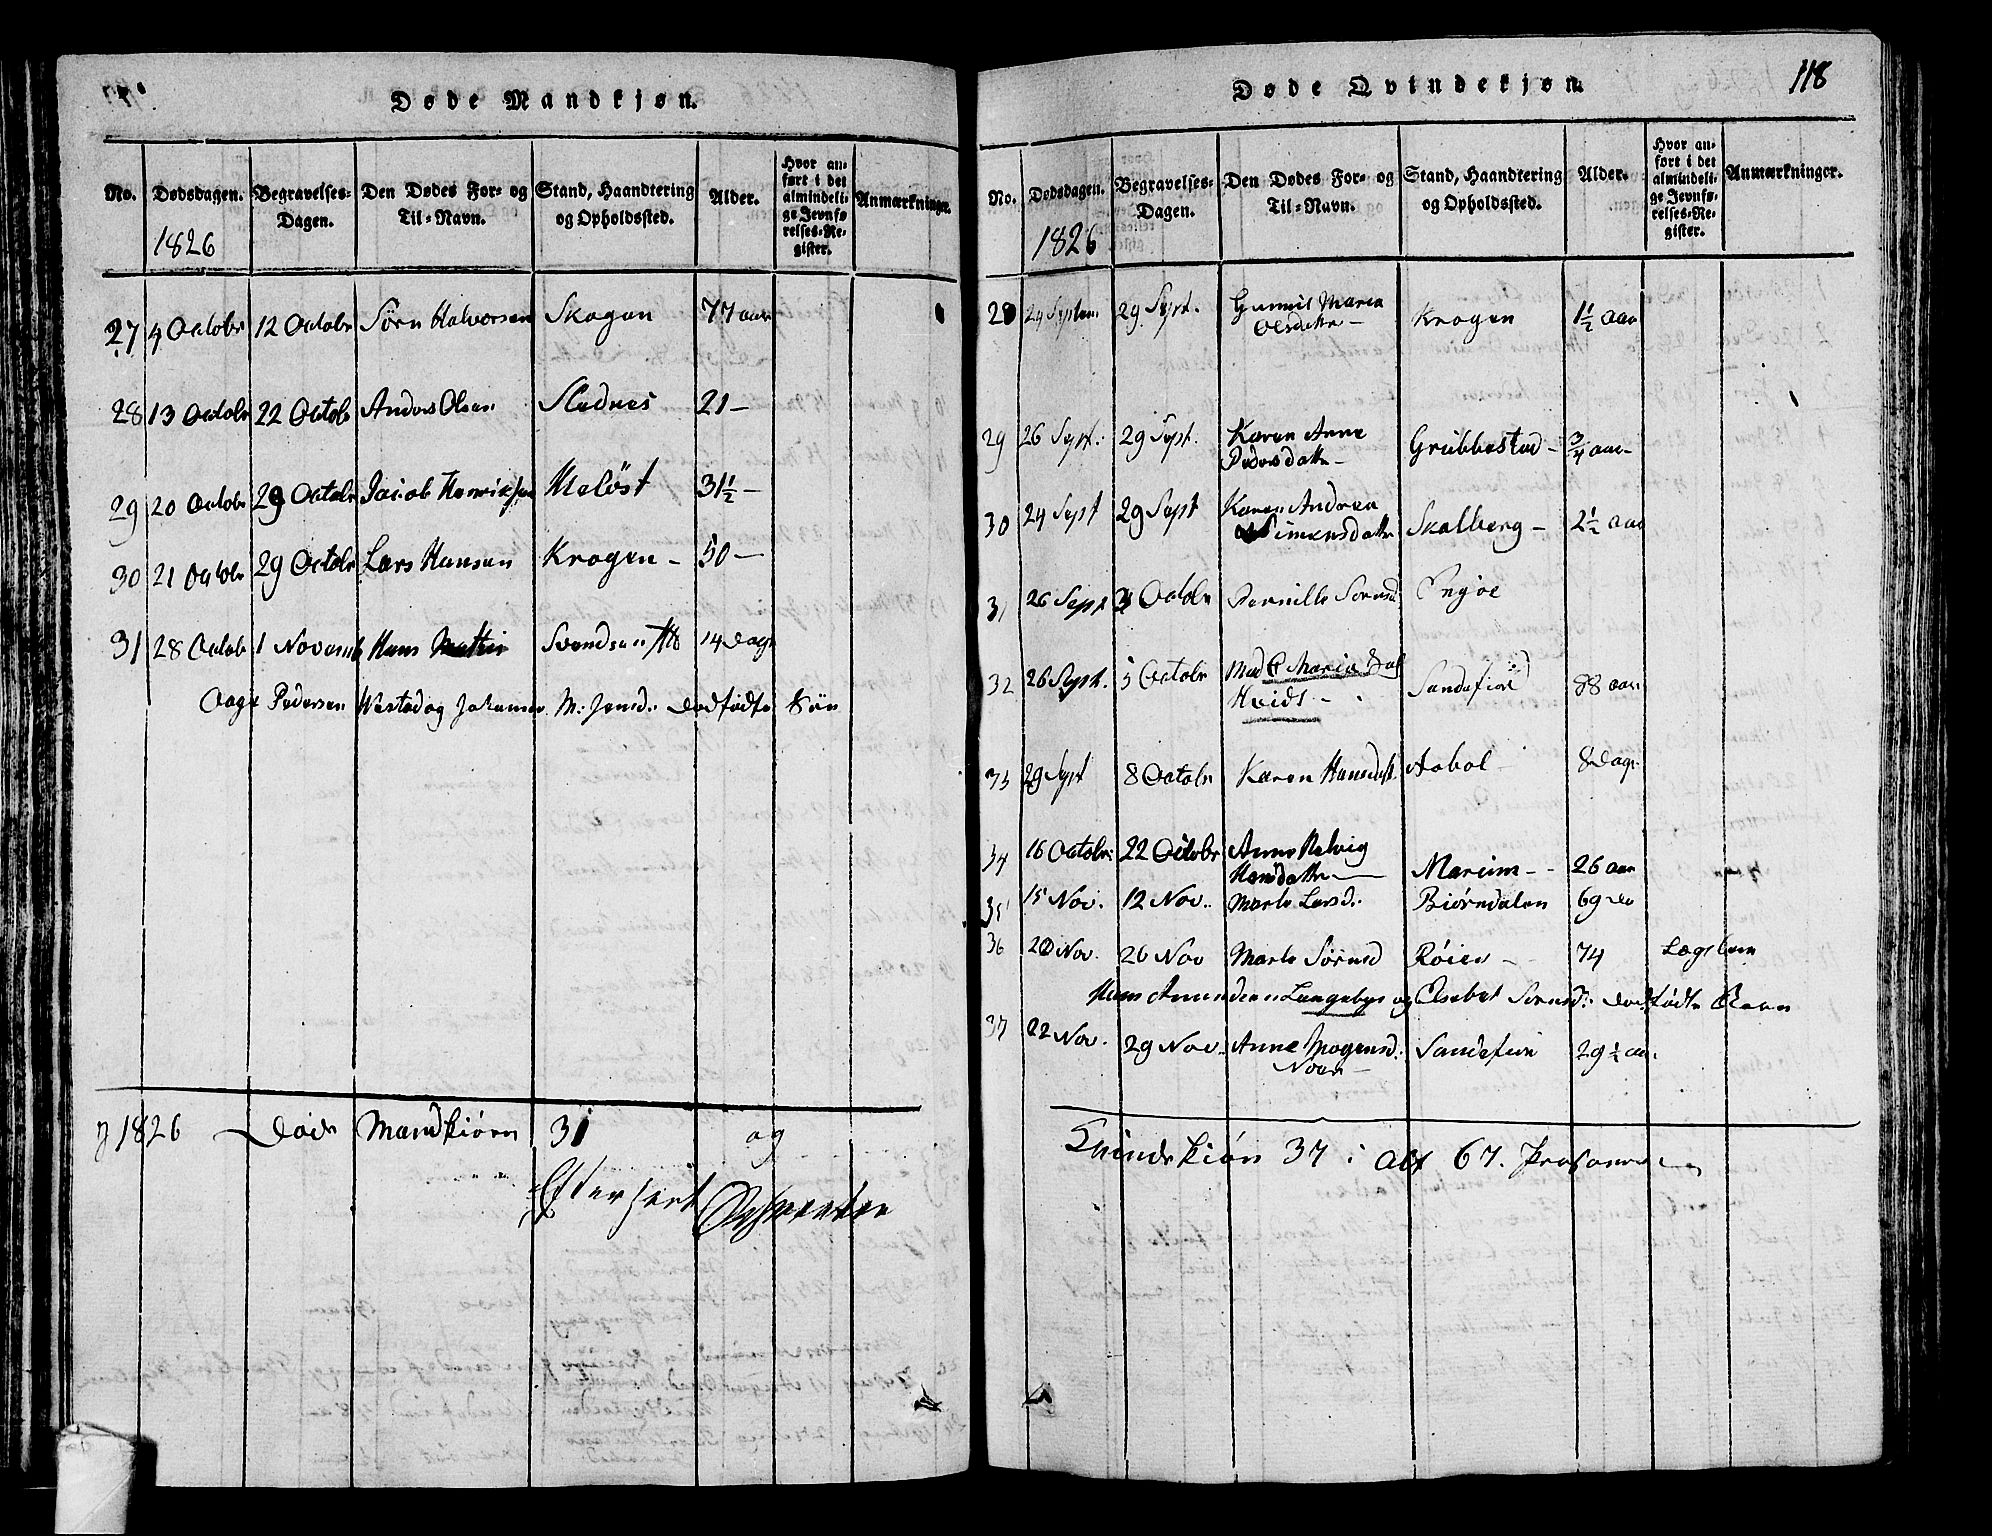 Døde Mandkjøn.
No. Dødsdagen. Begravelses-Dagen. Den Dødes For- og Til-Navn. Stand, Haandtering og Opholdssted. Alder. Hvor anført i det almindelige Jevnførelses-Register. Anmærkninger.
1826
27 4 Octobr 12 Octobr Sørn Halvorsen Skogen 77 aar
28 13 Octobr 22 Octobr Anders Olsen Slednes 21 –
29 20 Octobr 29 Octobr Jacob Henriksen Meløst 31 1/2 –
30 21 Octobr 29 Octobr Lars Hansen Krogen – 50 –
31 28 Octob 1 Novemb Hans Svendsen 14 Dage
Aage Pedersen og M: Jensd: dødfødte Søn
i 1826 Døde Mandkiøn 31 og
Efterseet
Døde Qvindekjøn. 118
No. Dødsdagen. Begravelses-Dagen. Den Dødes For- og Til-Navn. Stand, Haandtering og Opholdssted. Alder. Hvor anført i det almindelige Jevnførelses-Register. Anmærkninger.
1826
28 24 Septem 29 Sept. Gunnil Maria
Olsdattr – Krogen 1 1/2 aar
29 26 Sept. 29 Sept. Karen Anne
Pedersdattr – Grubbestad – 3/4 aar
30 24 Sept 29 Sept Karen Andrea
Simensdattr Skolberg – 2 1/2 aar
31 26 Sept 3 Octobr Pernille Sørnsd
32 26 Sept. 5 Octobr Mad Maria
Hvids – Sandefiord 88 aar
33 29 Sept 8 Octobr Karen Hansdatt. Aabol 8 Dage
34 16 Octobr. 22 Octobr Anne Helvig
Hansdattr – Marum – 26 aar
35 15 Nov. 12 Nov. Marte Larsd. Biørndalen 69 do
36 20 Nov. 26 Nov Marte Sørnsd Røien – 74 Lægslem
Hans Amundsen Langebye og Elsebet Sørnsd: dødfødte Barn
37 22 Nov. 29 Nov. Anne Mogensd. Sandefior 29 1/2 aar
Qvindekiøn 37 i alt 67. Personer